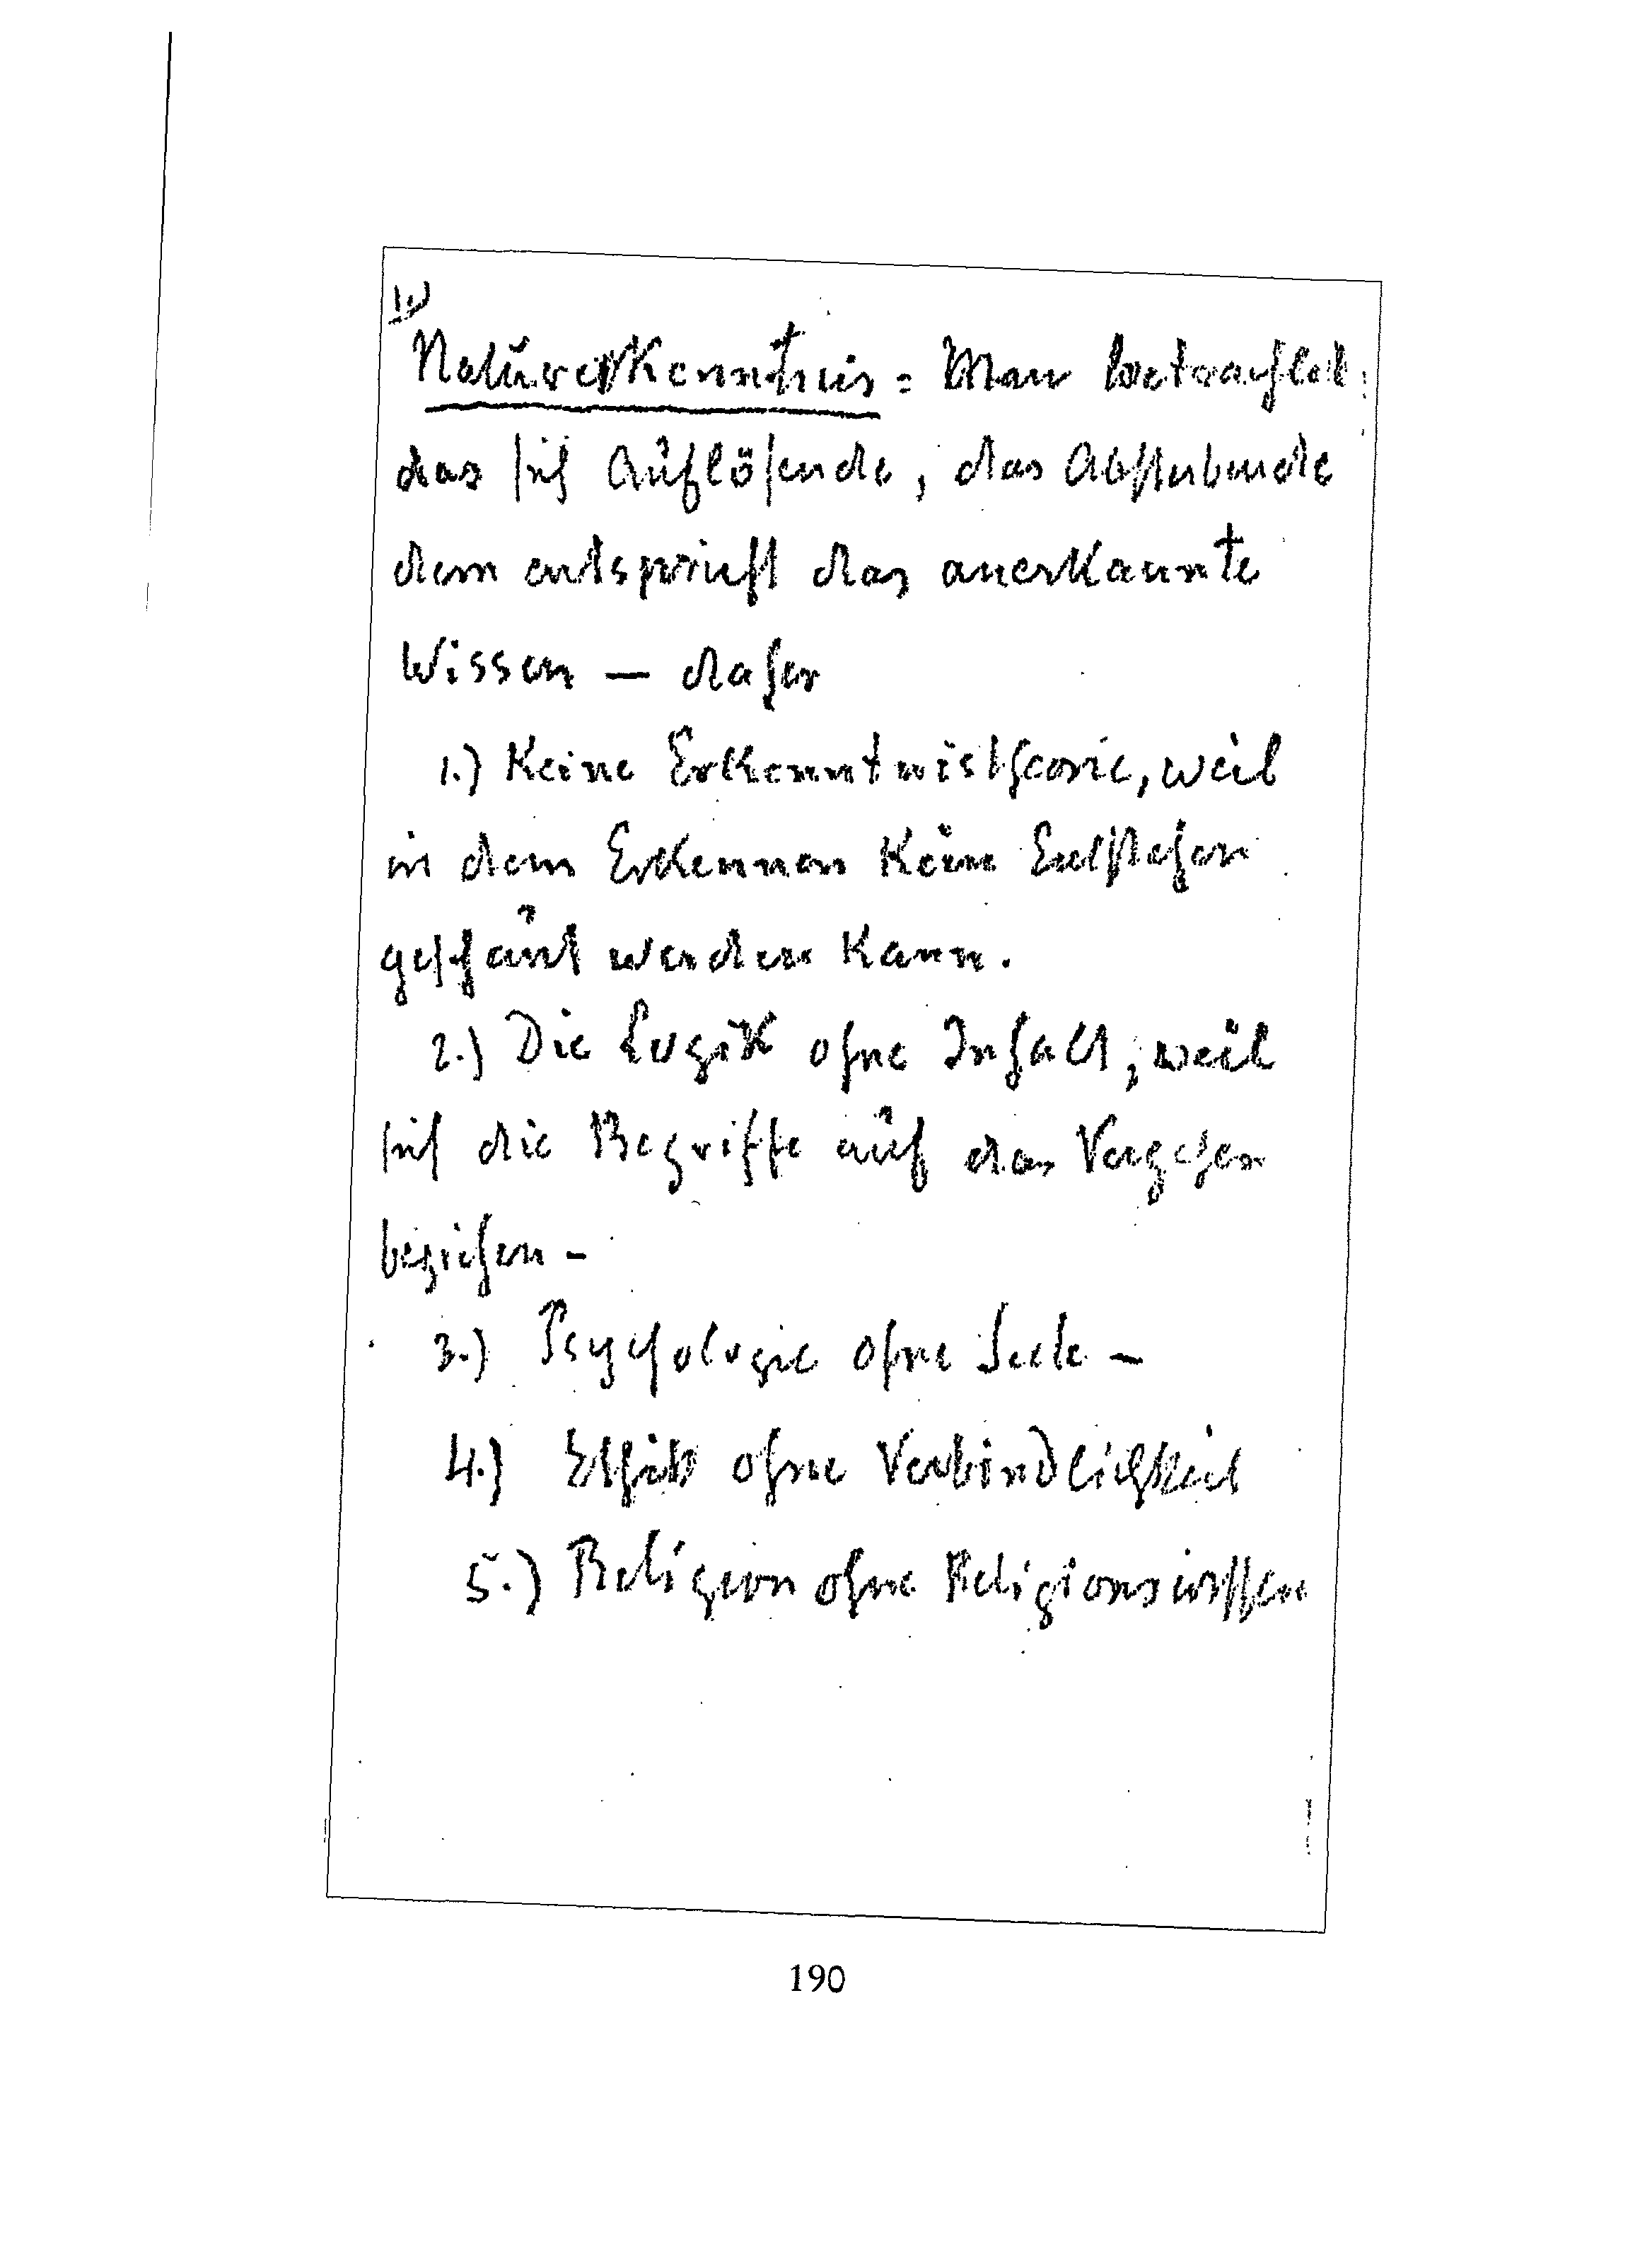 1.)
Naturerkenntnis = Man betrachtet:
das sich Auflösende, das Absterbende
dem entspricht das anerkannte
Wissen — daher
1.) Keine Erkenntnistheorie, weil
in dem Erkennen kein Entstehen
geschaut werden kann.
2.) Die Logik ohne Inhalt, weil
sich die Begriffe auf das Vergehen
beziehen –
3.) Psychologie ohne Seele –
4.) Ethik ohne Verbindlichkeit
5.) Religion ohne Religionswissen
190